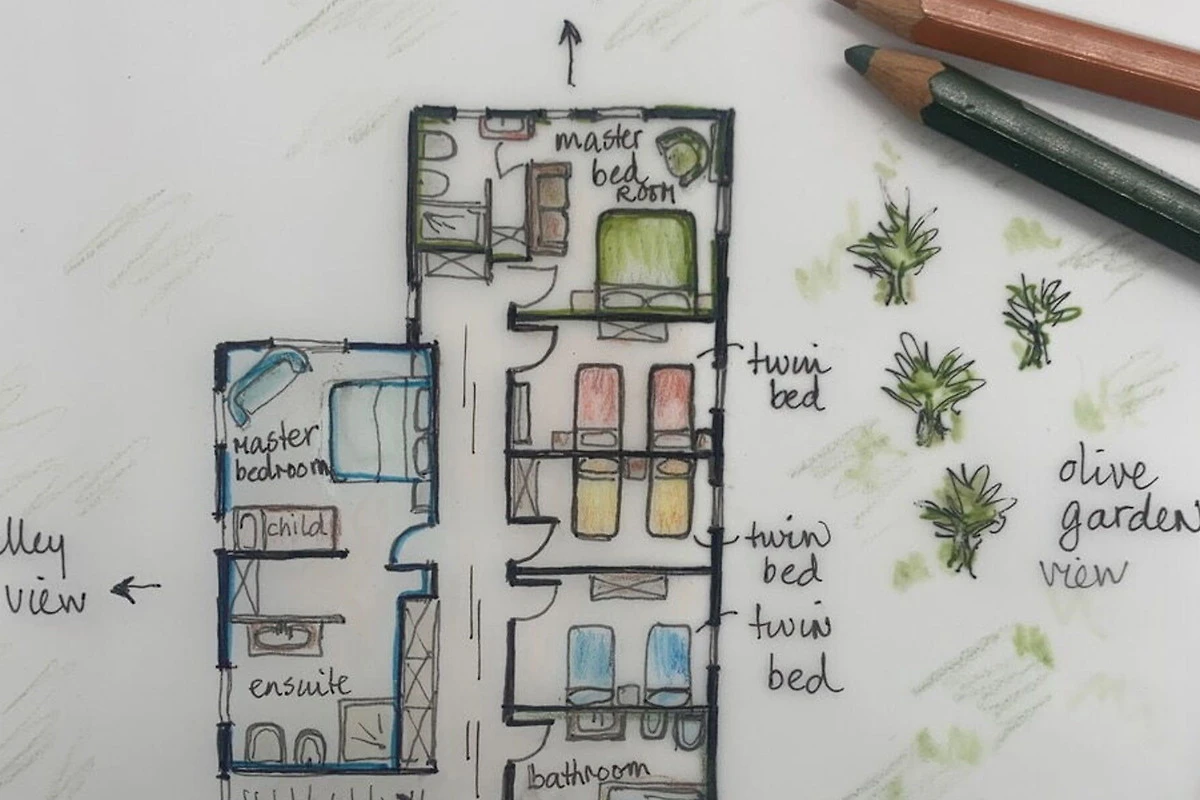 master
bed
ROOM
twin
bed
Master
bedroom
child
olive
garden
view
lley
view
twin
bed
twin
bed
ensuite
bathroom